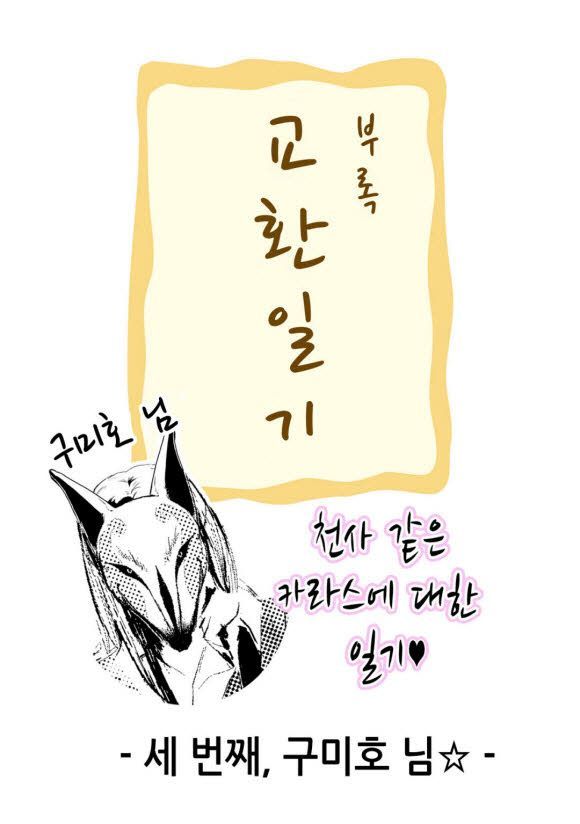 부록
교환일기
구미호 님
천사 같은
카라스에 대한
일기♥
- 세 번째, 구미호 님☆ -